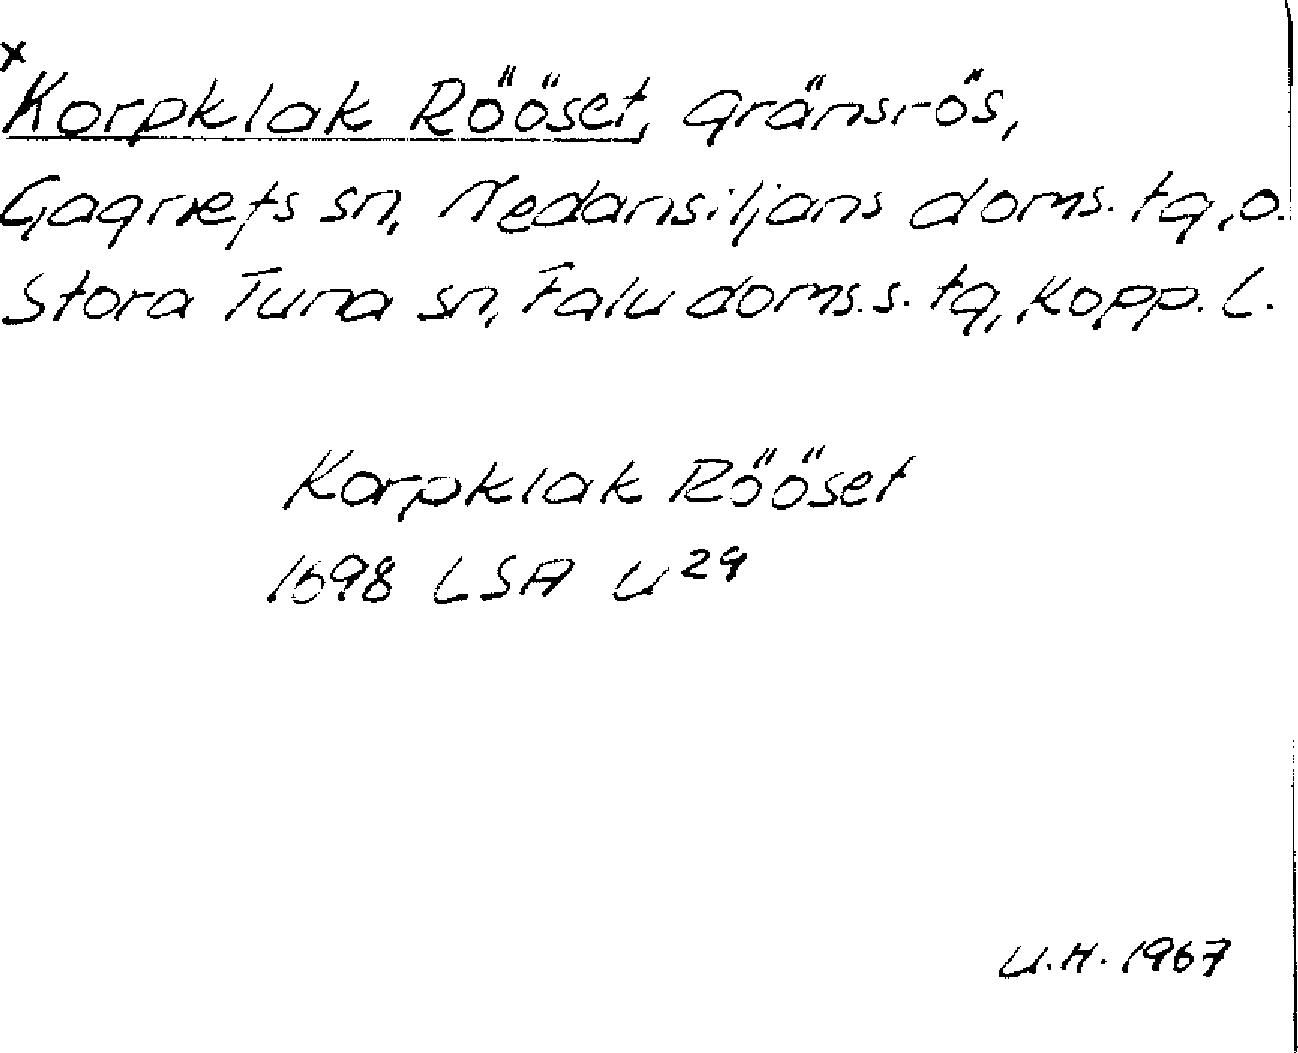 x
Korpklak Rööset, gränsrös,
Gagnefs sn, Nedansiljans doms. tg, o.
Stora Tuna sn, Falu doms.s. tg, Kopp. l.
Korpklak Rööset
1698 LSA U²⁹
U.H. 1967